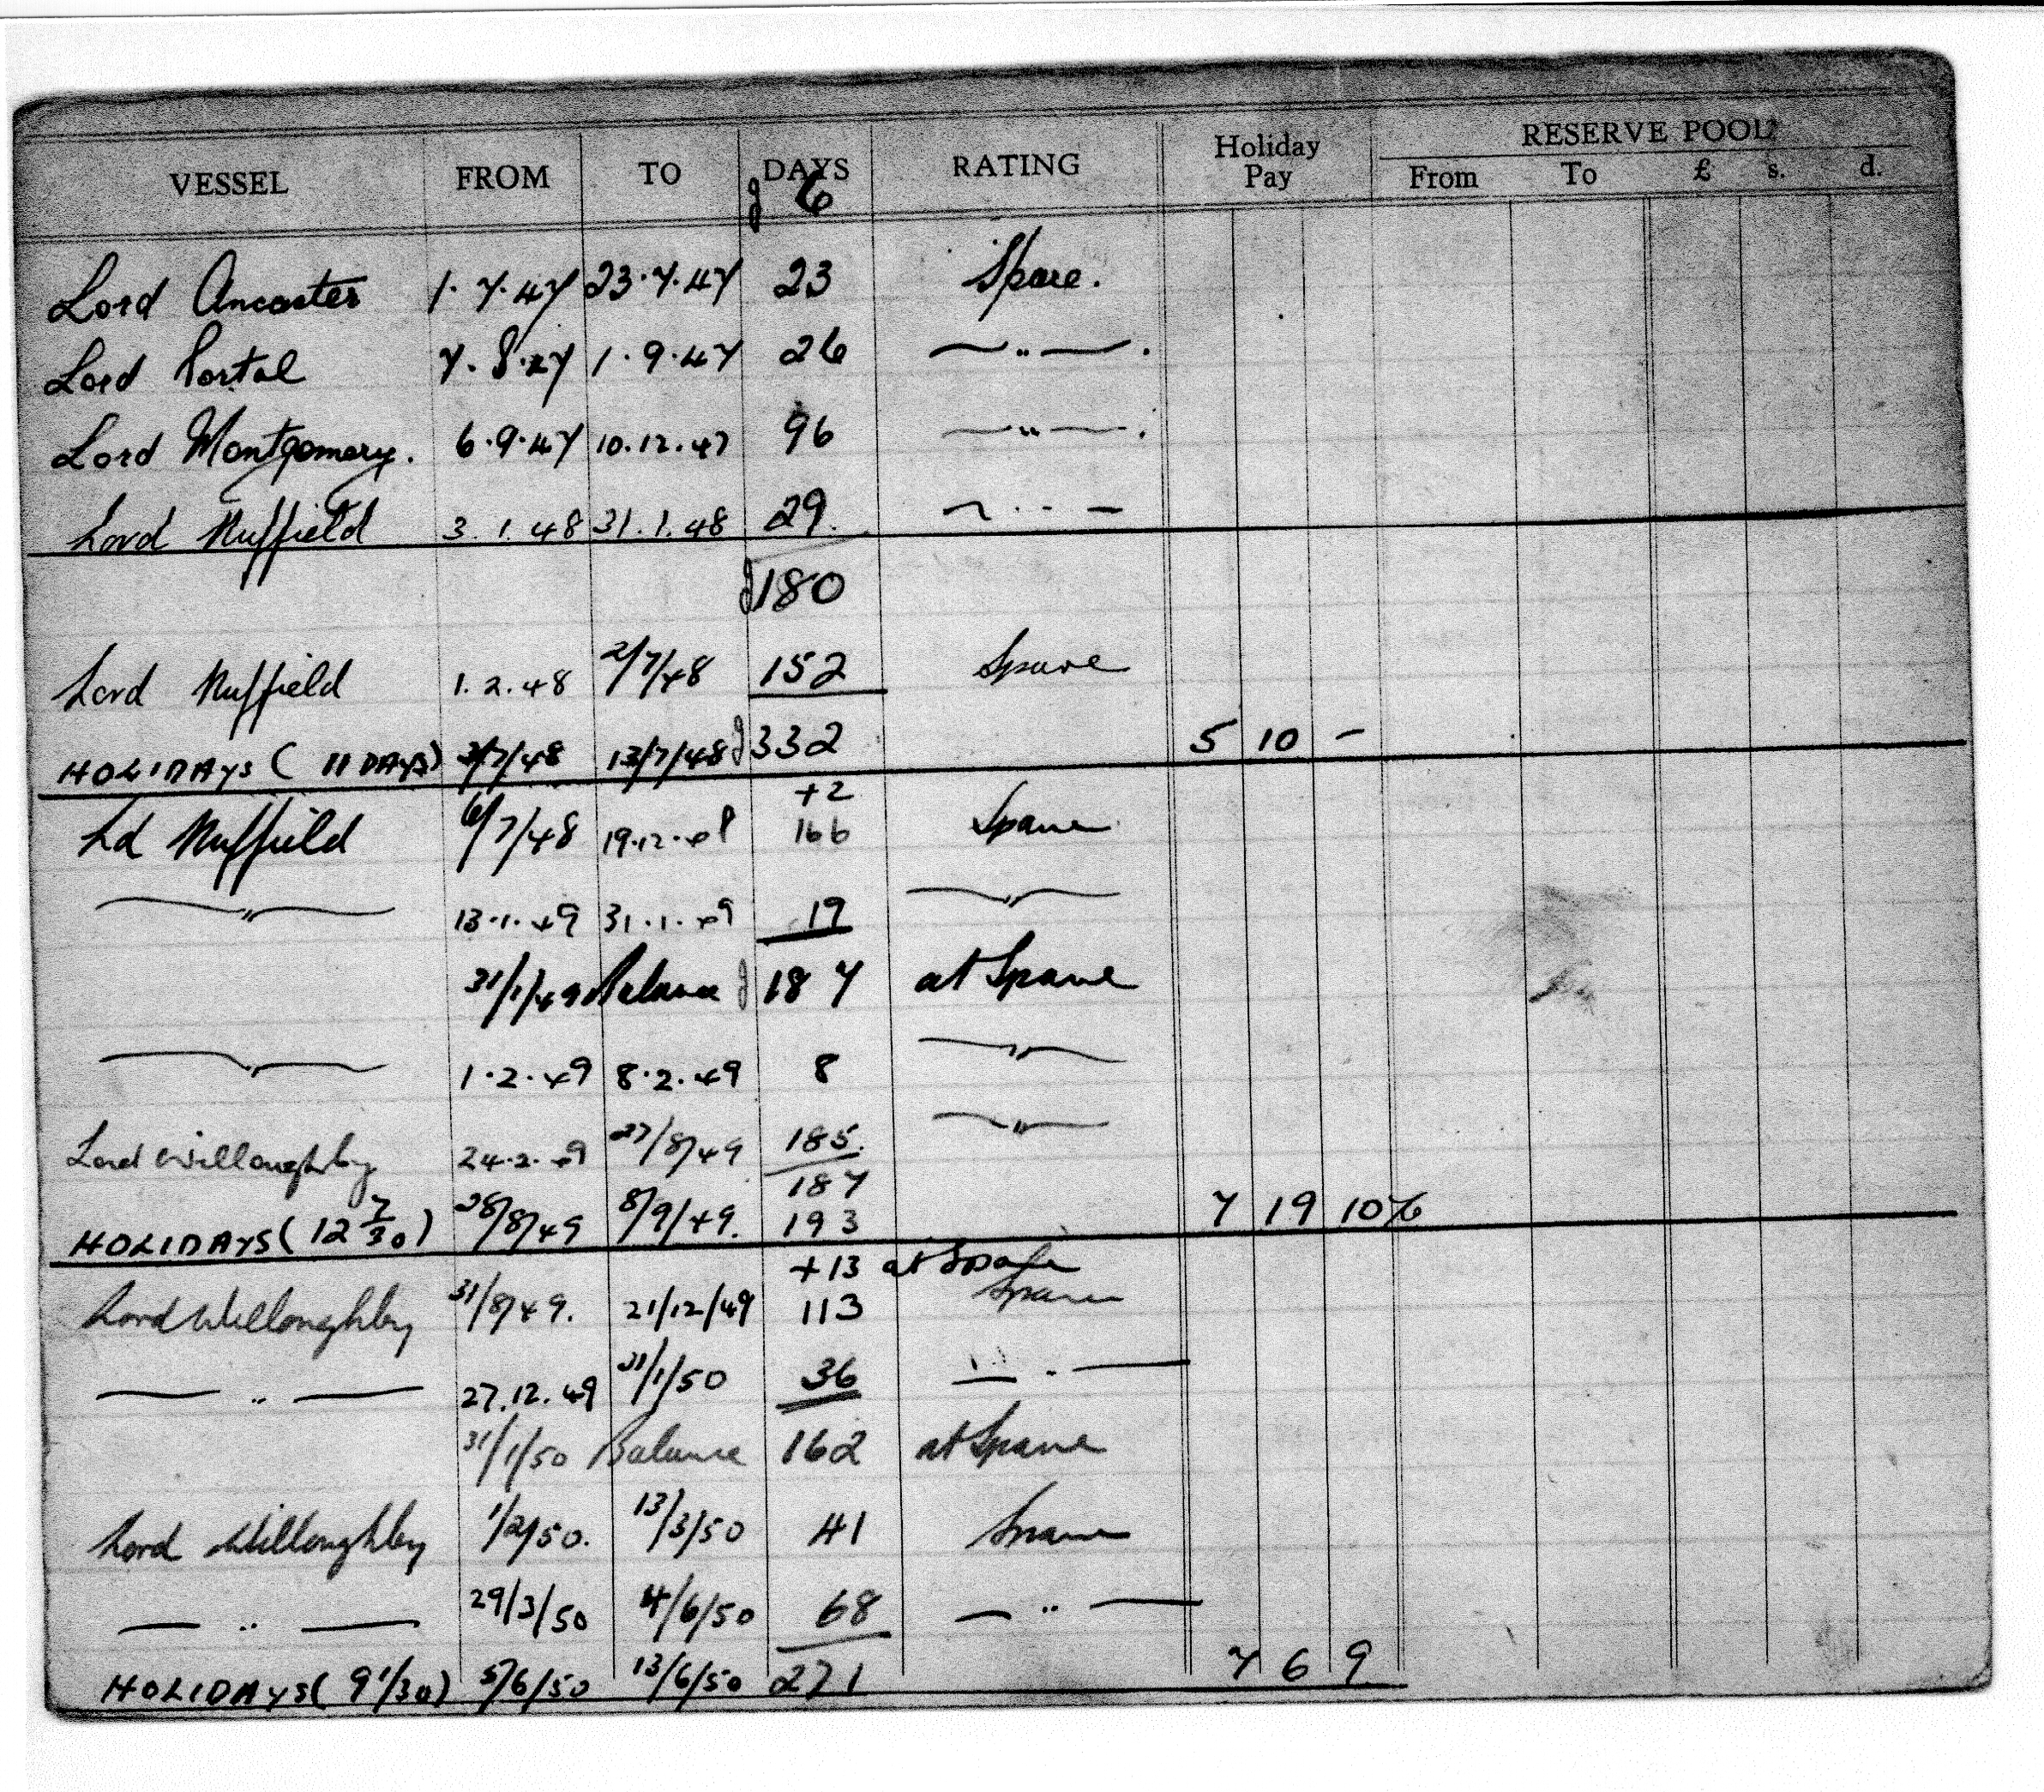 VESSEL FROM TO DAYS RATING Holiday Pay RESERVE POOL
From To £ s. d.
6
Lord Ancaster 1.7.47 23.7.47 23 Spare.
Lord Portal 7.8.47 1.9.47 26 — " — .
Lord Montgomery. 6.9.47 10.12.47 96 — " — .
Lord Nuffield 3.1.48 31.1.48 29. — " —
180
Lord Nuffield 1.2.48 2/7/48 152 Spare
HOLIDAYS ( 11 DAYS) 3/7/48 13/7/48 332 5 10 -
+2
Ld Nuffield 6/7/48 19.12.48 166 Spare
— " — 13.1.49 31.1.49 19 — " —
31/1/49 Balance 187 at Spare
— " — 1.2.49 8.2.49 8 — " —
Lord Willoughby 24.2.49 27/8/49 185. — " —
187
HOLIDAYS ( 12 7/30 ) 28/8/49 8/9/49. 193 7 19 10½
+13 at Spare
Lord Willoughby 31/8/49. 21/12/49 113 Spare
— " — 27.12.49 31/1/50 36 — " —
31/1/50 Balance 162 at Spare
Lord Willoughby 1/2/50. 13/3/50 41 Spare
— " — 29/3/50 4/6/50 68 — " —
HOLIDAYS ( 9 1/30 ) 5/6/50 13/6/50 271 7 6 9